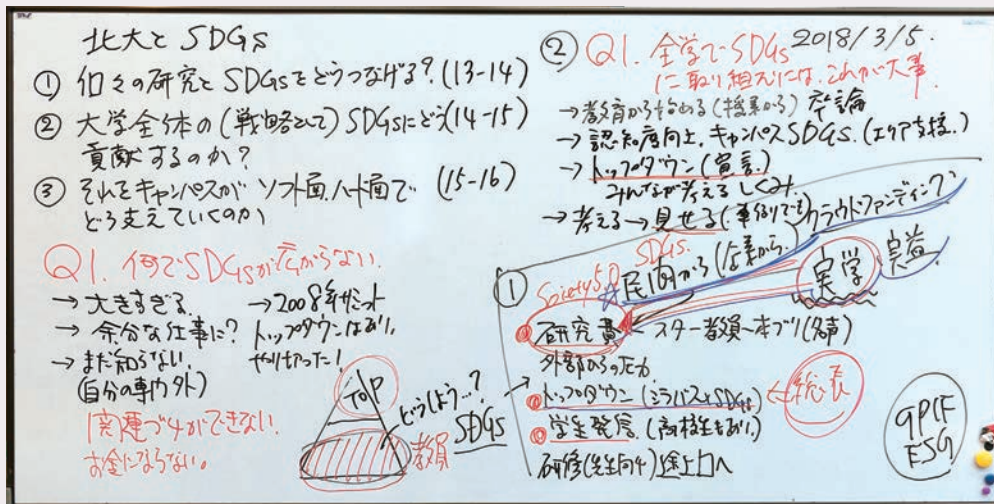 北大とSDGs
① 個々の研究とSDGsをどうつなげる？(13-14)
② 大学全体の(戦略として)SDGsにどう(14-15)
貢献するのか？
③ それをキャンパスがソフト面ハード面で (15-16)
どう支えていくのか
Q1. 何でSDGsが広がらない
→ 大きすぎる
→ 余分な仕事に？
→ まだ知らない
(自分の専門外)
関連づけができない
お金にならない。
→ 2008年サミット
トップダウンはあり。
やり切った！
TOP
どうしよう…？
教員
SDGs
2018/3/5.
② Q1. 全学でSDGs
に取り組むには、これが大事
→ 教育から始める(授業から) 卒論
→ 認知度向上、キャンパスSDGs.
→ トップダウン(宣言)
みんなが考えるしくみ
→ 考える→見せる(事例でも) クラウドファンディング
①
Society5.0
SDGs.
民間から
実学
実益
研究費
スター教員一本づり(名声)
外部からの圧力
→ トップダウン(シラバスとSDGs)
学生発信.(高校生もあり)
研修(先生向け)
GPIF
ESG